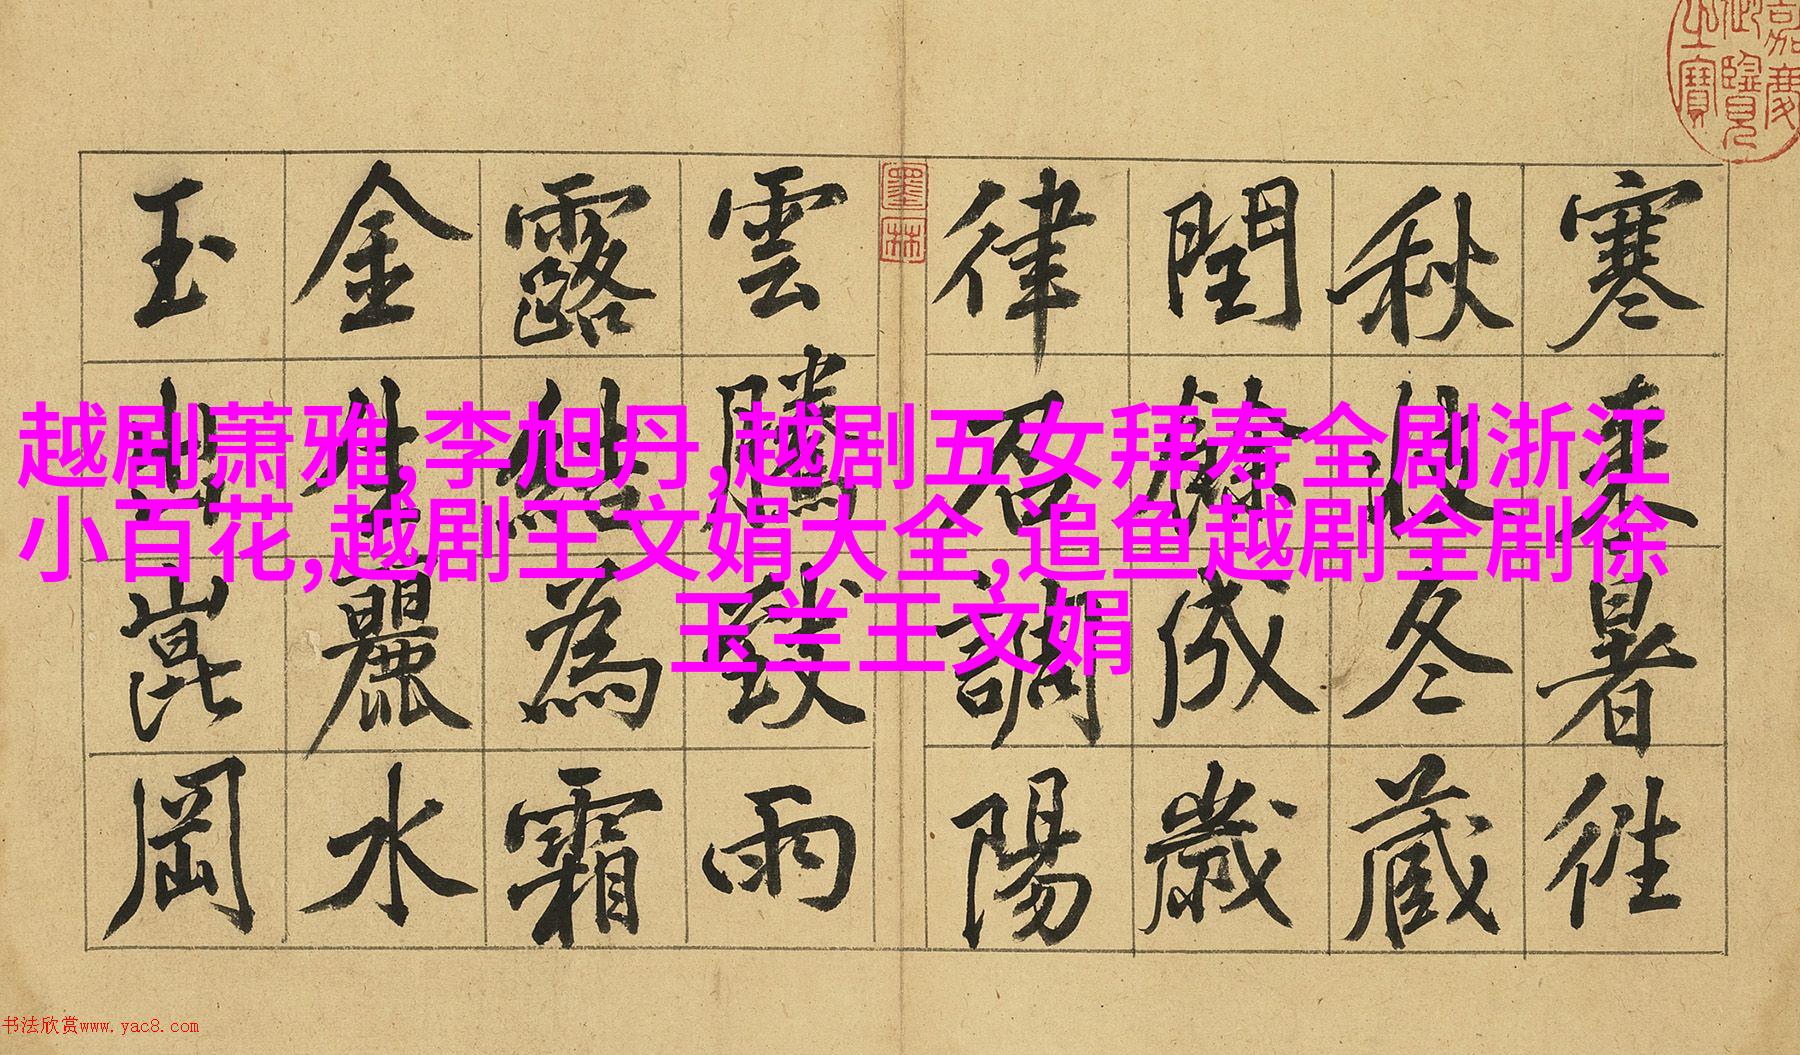 越剧萧雅,李旭丹,越剧五女拜寿全剧浙江
小百花,越剧王文娟大全,追鱼越剧全剧徐
玉兰王文娟
寒來暑徃
秋收冬藏
閏餘成歲
律召調陽
雲騰致雨
露結為霜
金生麗水
玉出崑岡
嘉慶御覽之寶
墨林
书法欣赏www.yac8.com